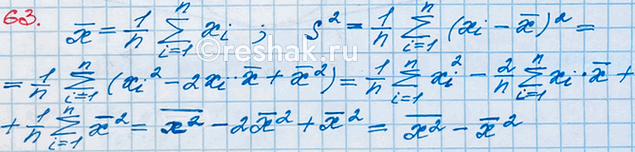 63. x̄ = 1/n ∑_{i=1}^{n} xᵢ ; S² = 1/n ∑_{i=1}^{n} (xᵢ − x̄)² =
= 1/n ∑_{i=1}^{n} (xᵢ² − 2xᵢ·x̄ + x̄²) = 1/n ∑_{i=1}^{n} xᵢ² − 2/n ∑_{i=1}^{n} xᵢ·x̄ +
+ 1/n ∑_{i=1}^{n} x̄² = \overline{x²} − 2x̄² + x̄² = \overline{x²} − x̄²